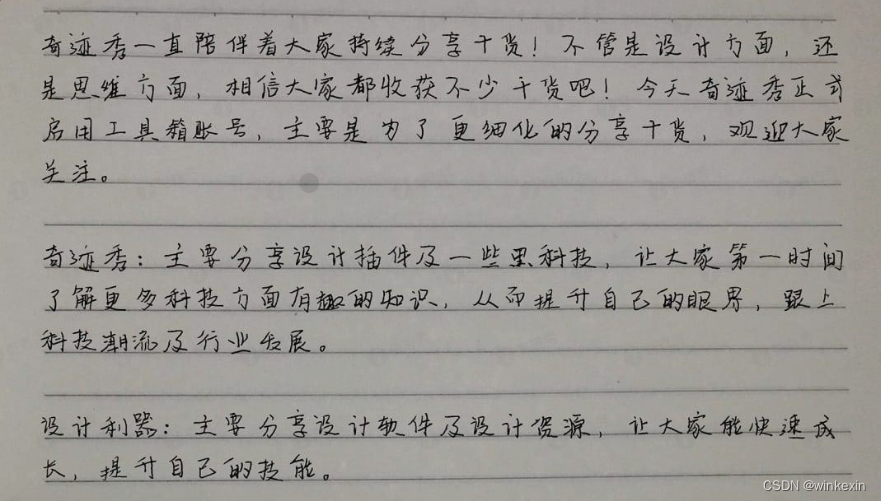 奇迹秀一直陪伴着大家持续分享干货！不管是设计方面，还
是思维方面，相信大家都收获不少干货吧！今天奇迹秀正式
启用工具箱账号，主要是为了更细化的分享干货，欢迎大家
关注。
奇迹秀：主要分享设计插件及一些黑科技，让大家第一时间
了解更多科技方面有趣的知识，从而提升自己的眼界，跟上
科技潮流及行业发展。
设计利器：主要分享设计软件及设计资源，让大家能快速成
长，提升自己的技能。
CSDN @winkexin